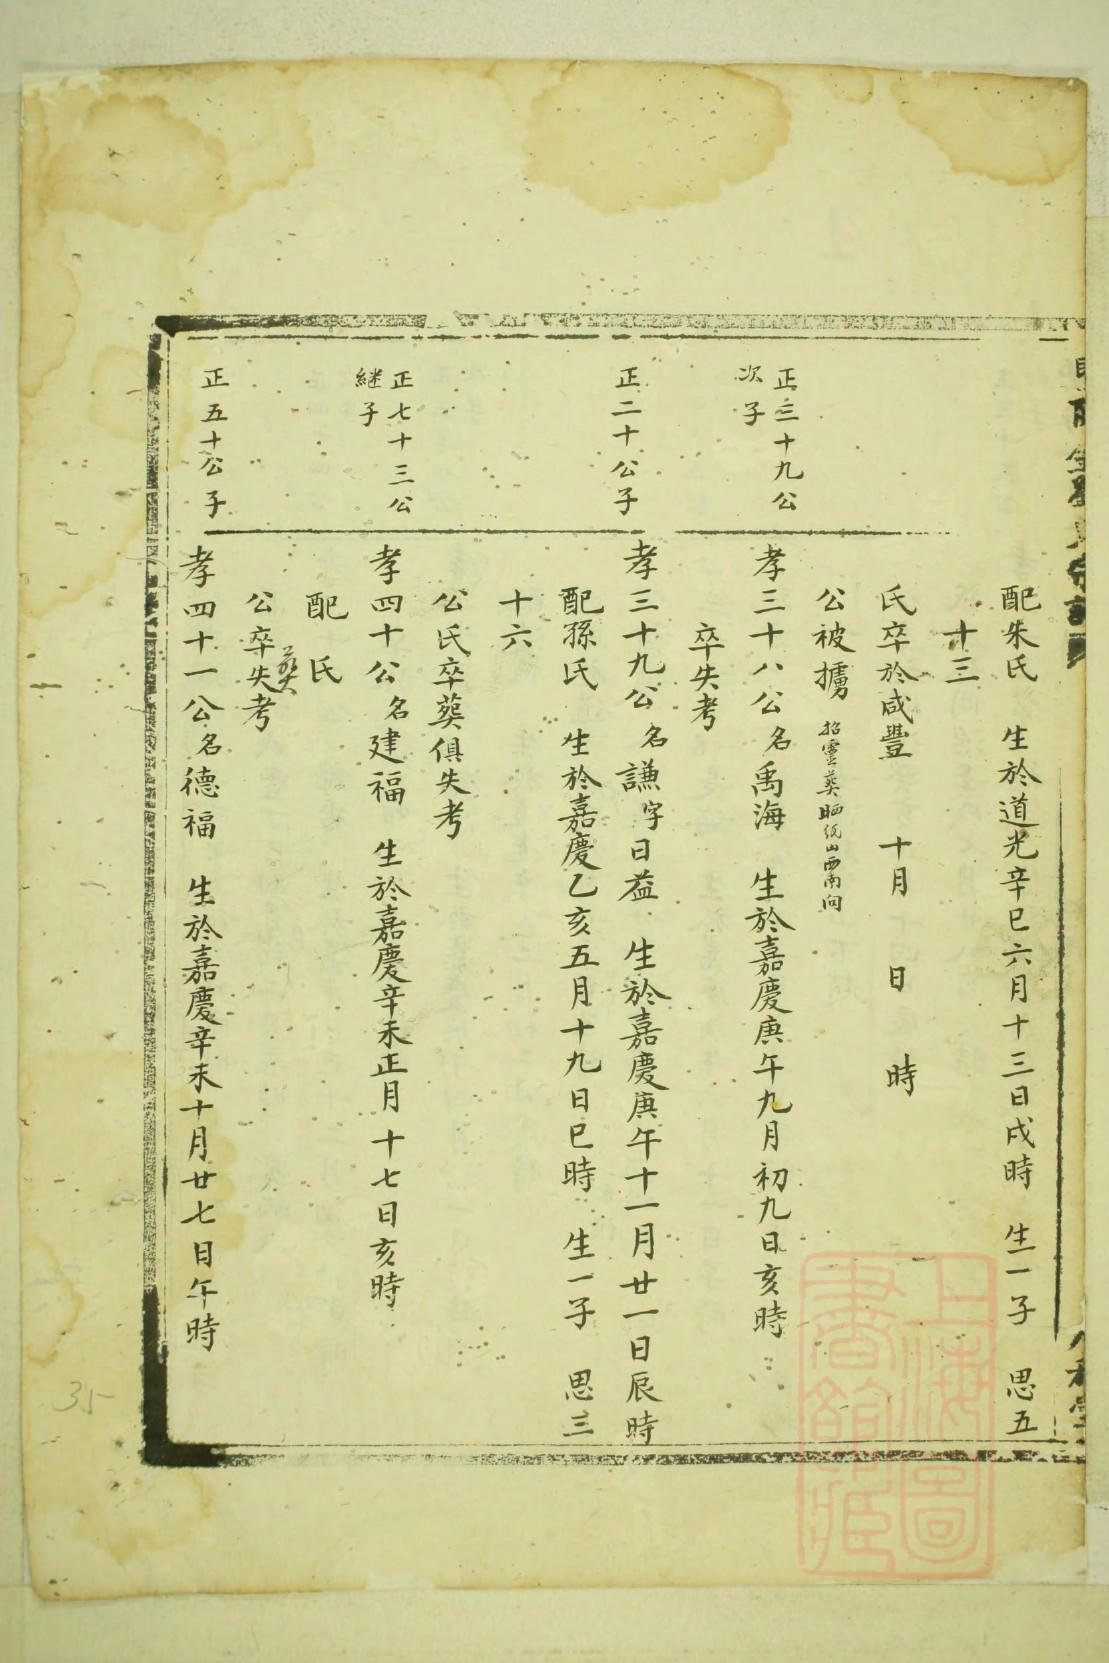 配朱氏 生於道光辛巳六月十三日戌時 生一子 思五
十三
氏卒於咸豐 十月 日 時
公被擄 招靈葬晒纸山西南向
正三十九公
次子
孝三十八公名禹海 生於嘉慶庚午九月初九日亥時
卒失考
正二十公子
孝三十九公名謙字日益 生於嘉慶庚午十一月廿一日辰時
配孫氏 生於嘉慶乙亥五月十九日巳時 生一子 思三
十六
公氏卒葬俱失考
正七十三公
継子
孝四十公名建福 生於嘉慶辛未正月十七日亥時
配 氏
公卒葬失考
正五十公子
孝四十一公名德福 生於嘉慶辛未十月廿七日午時
35
上海圖
書館藏